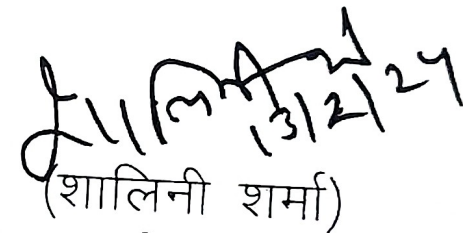 शालिनी
13/2/24
(शालिनी शर्मा)